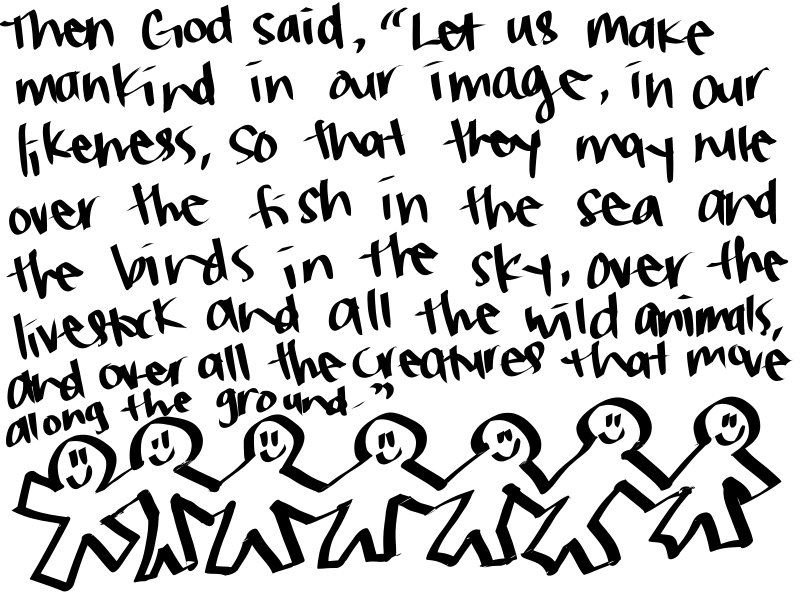 Then God said, "Let us make
mankind in our image, in our
likeness, so that they may rule
over the fish in the sea and
the birds in the sky, over the
livestock and all the wild animals,
and over all the creatures that move
along the ground."